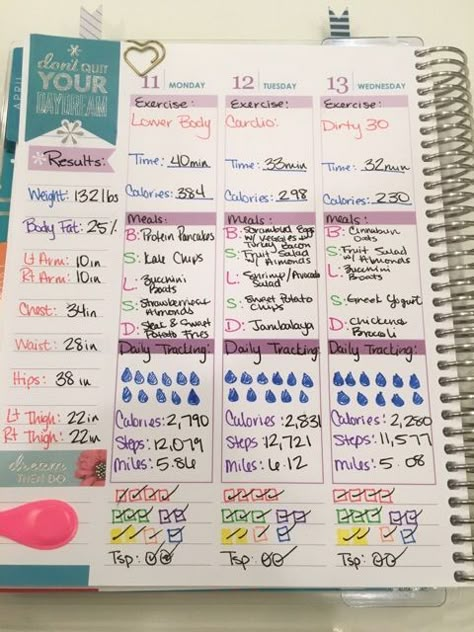 APRIL
don't QUIT
YOUR
DAYDREAM
Results:
Weight: 132 lbs
Body Fat: 25%
Lt Arm: 10in
Rt Arm: 10in
Chest: 34in
Waist: 28in
Hips: 38 in
Lt Thigh: 22in
Rt Thigh: 22in
dream
THEN DO
11 MONDAY
Exercise:
Lower Body
Time: 40min
Calories: 384
Meals:
B: Protein Pancakes
S: Kale Chips
L: Zucchini
Boats
S: Strawberries &
Almonds
D: Steak & Sweet
Potato Fries
Daily Tracking:
Calories: 2,790
Steps: 12,079
Miles: 5.86
Tsp:
12 TUESDAY
Exercise:
Cardio:
Time: 33min
Calories: 298
Meals:
B: Scrambled Eggs
w/ Veggies w/
Turkey Bacon
S: Fruit Salad
w/ Almonds
L: Shrimp/Avocado
Salad
S: Sweet Potato
Chips
D: Jambalaya
Daily Tracking:
Calories: 2,831
Steps: 12,721
Miles: 6.12
Tsp:
13 WEDNESDAY
Exercise:
Dirty 30
Time: 32min
Calories: 230
Meals:
B: Cinnabun
Oats
S: Fruit Salad
w/ Almonds
L: Zucchini
Boats
S: Greek Yogurt
D: Chicken &
Broccoli
Daily Tracking:
Calories: 2,280
Steps: 11,577
Miles: 5.08
Tsp: